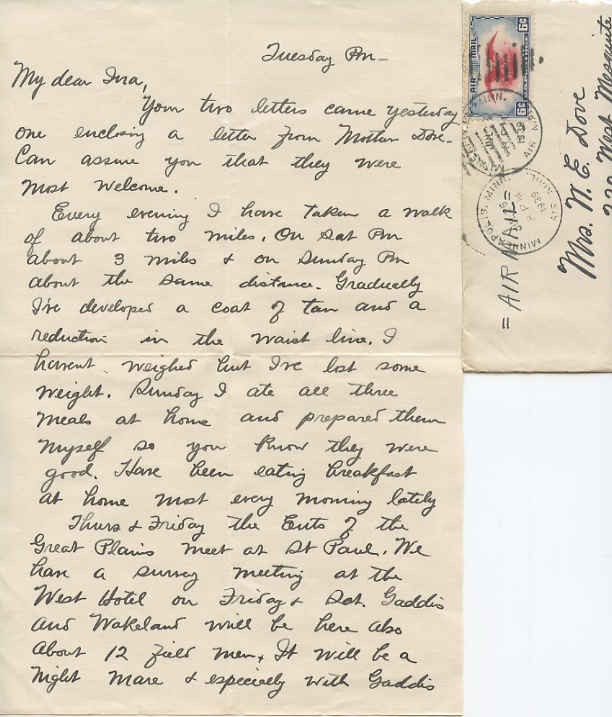 Tuesday Pm-
My dear Ina,
Your two letters came yesterday
one enclosing a letter from Mother Dove-
Can assure you that they were
most welcome.
Every evening I have taken a walk
of about two miles. On Sat Pm
about 3 miles & on Sunday Pm
about the same distance. Gradually
I've developed a coat of tan and a
reduction in the waist line. I
havent weighed but I've lost some
weight. Sunday I ate all three
meals at home and prepared them
myself so you know they were
good. Have been eating breakfast
at home most every morning lately
Thurs & Friday the Ents of the
Great Plains meet at St Paul. We
have a survey meeting at the
West Hotel on Friday & Sat. Gaddis
and Wakeland will be here also
about 12 field men. It will be a
night mare & especially with Gaddis
AIR MAIL
6c 6c
MINNEAPOLIS, MINN.
AIR MAIL
1939
= AIR MAIL =
Mrs. N. E. Dove
West Mosquite